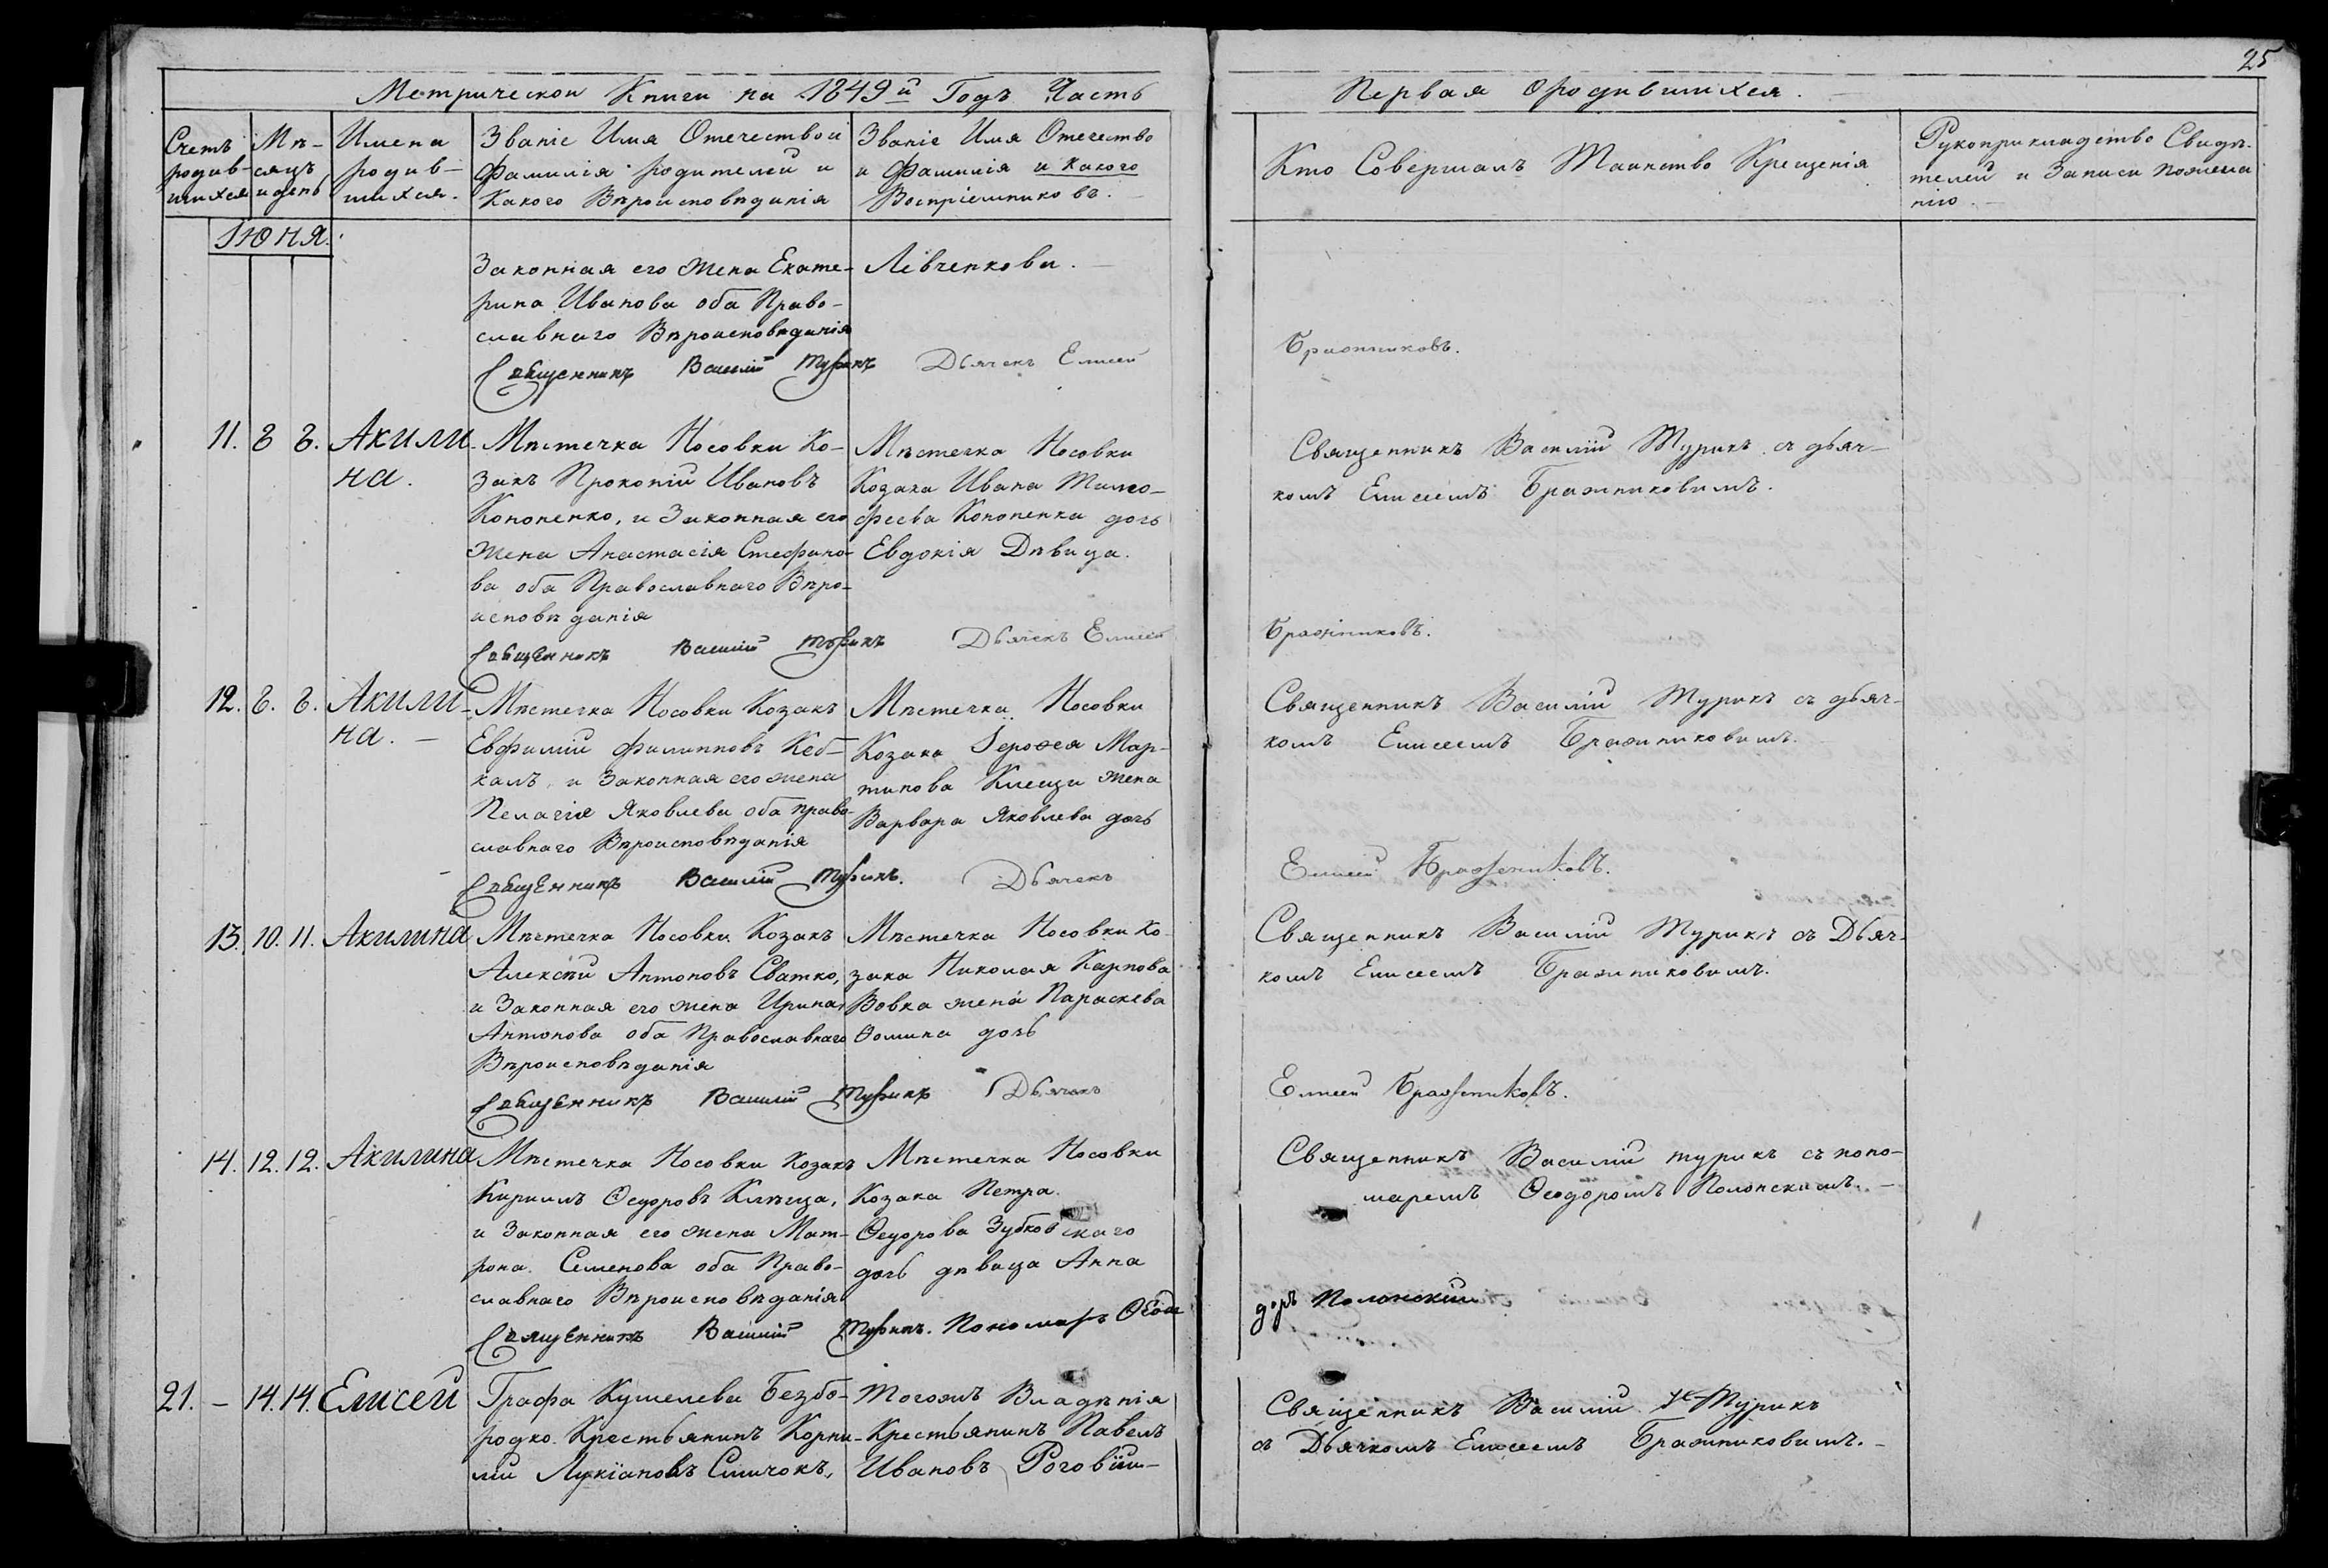 25
Метрической Книги на 1849й Годъ Часть
Первая о родившихся.
Счетъ родив-шихся
Мѣ-сяцъ и день
Имена родив-шихся.
Званіе Имя Отечество и
Фамилія родителей и
Какого Вѣроисповѣданія
Званіе Имя Отечество
и Фамилія и Какого
Воспріемниковъ.
Кто Совершалъ Таинство Крещенія
Рукоприкладство Свидѣ-
телей и Записи пожела
нію.
Іюня.
Законная его жена Екате- Лѣвченкова.
рина Иванова оба Право-
славнаго Вѣроисповѣданія
Священникъ Василій Турикъ Дьячекъ Елисей Бражниковъ.
11. 8 8. Акили-
на.
Мѣстечка Носовки Ко-
закъ Прокопій Ивановъ
Кононенко, и Законная его
жена Анастасія Стефано-
ва оба Православнаго Вѣро-
исповѣданія
Мѣстечка Носовки
Козака Ивана Тимо-
феева Кононенка дочь
Евдокія Дѣвица.
Священникъ Василій Турикъ съ дьяч-
комъ Елисеемъ Бражниковимъ.
Священникъ Василій Турикъ Дьячекъ Елисей Бражниковъ.
12. 8. 8. Акили-
на.
Мѣстечка Носовки Козакъ
Евфимій Филипповъ Кеб-
калъ, и Законная его жена
Пелагія Яковлева оба право-
славнаго Вѣроисповѣданія
Мѣстечка Носовки
Козака Іерофея Мар-
тинова Клещи жена
Варвара Яковлева дочь
Священникъ Василій Турикъ съ дьяч-
комъ Елисеемъ Бражниковимъ.
Священникъ Василій Турикъ. Дьячекъ Елисей Бражениковъ.
13. 10. 11. Акилина
Мѣстечка Носовки Козакъ
Алексѣй Антоновъ Сватко,
и Законная его жена Ирина
Антонова оба Православнаго
Вѣроисповѣданія
Мѣстечка Носовки Ко-
зака Николая Карпова
Вовка жена Параскева
Ѳомина дочь
Священникъ Василій Турикъ съ Дьяч-
комъ Елисеемъ Бражниковимъ.
Священникъ Василій Турикъ Дьячекъ Елисей Бражениковъ.
14. 12. 12. Акилина
Мѣстечка Носовки Козакъ
Кириллъ Ѳедоровъ Клѣща,
и Законная его жена Мат-
рона Семенова оба Право-
славнаго Вѣроисповѣданія
Мѣстечка Носовки
Козака Петра
Ѳедорова Зубковскаго
дочь дѣвица Анна
Священникъ Василій турикъ съ поно-
маремъ Ѳеодоромъ Полонскимъ.
Священникъ Василій Турикъ. Пономарь Ѳеодоръ Полонскій
21. – 14. 14. Елисей
Графа Кушелева Безбо-
родко Крестьянинъ Корни-
лій Лукіановъ Смичокъ,
Тогожъ Владѣнія
Крестьянинъ Павелъ
Ивановъ Роговій
Священникъ Василій Турикъ
съ Дьячкомъ Елисеемъ Бражниковимъ.